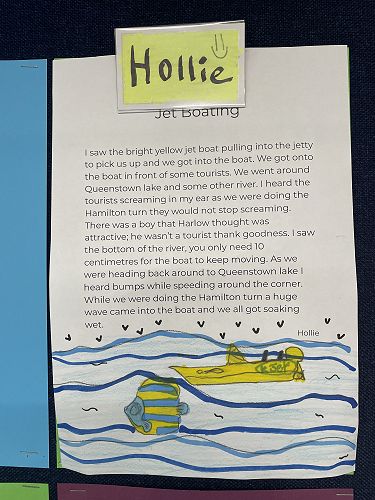 Hollie
Jet Boating
I saw the bright yellow jet boat pulling into the jetty
to pick us up and we got into the boat. We got onto
the boat in front of some tourists. We went around
Queenstown lake and some other river. I heard the
tourists screaming in my ear as we were doing the
Hamilton turn they would not stop screaming.
There was a boy that Harlow thought was
attractive; he wasn't a tourist thank goodness. I saw
the bottom of the river, you only need 10
centimetres for the boat to keep moving. As we
were heading back around to Queenstown lake I
heard bumps while speeding around the corner.
While we were doing the Hamilton turn a huge
wave came into the boat and we all got soaking
wet.
Hollie